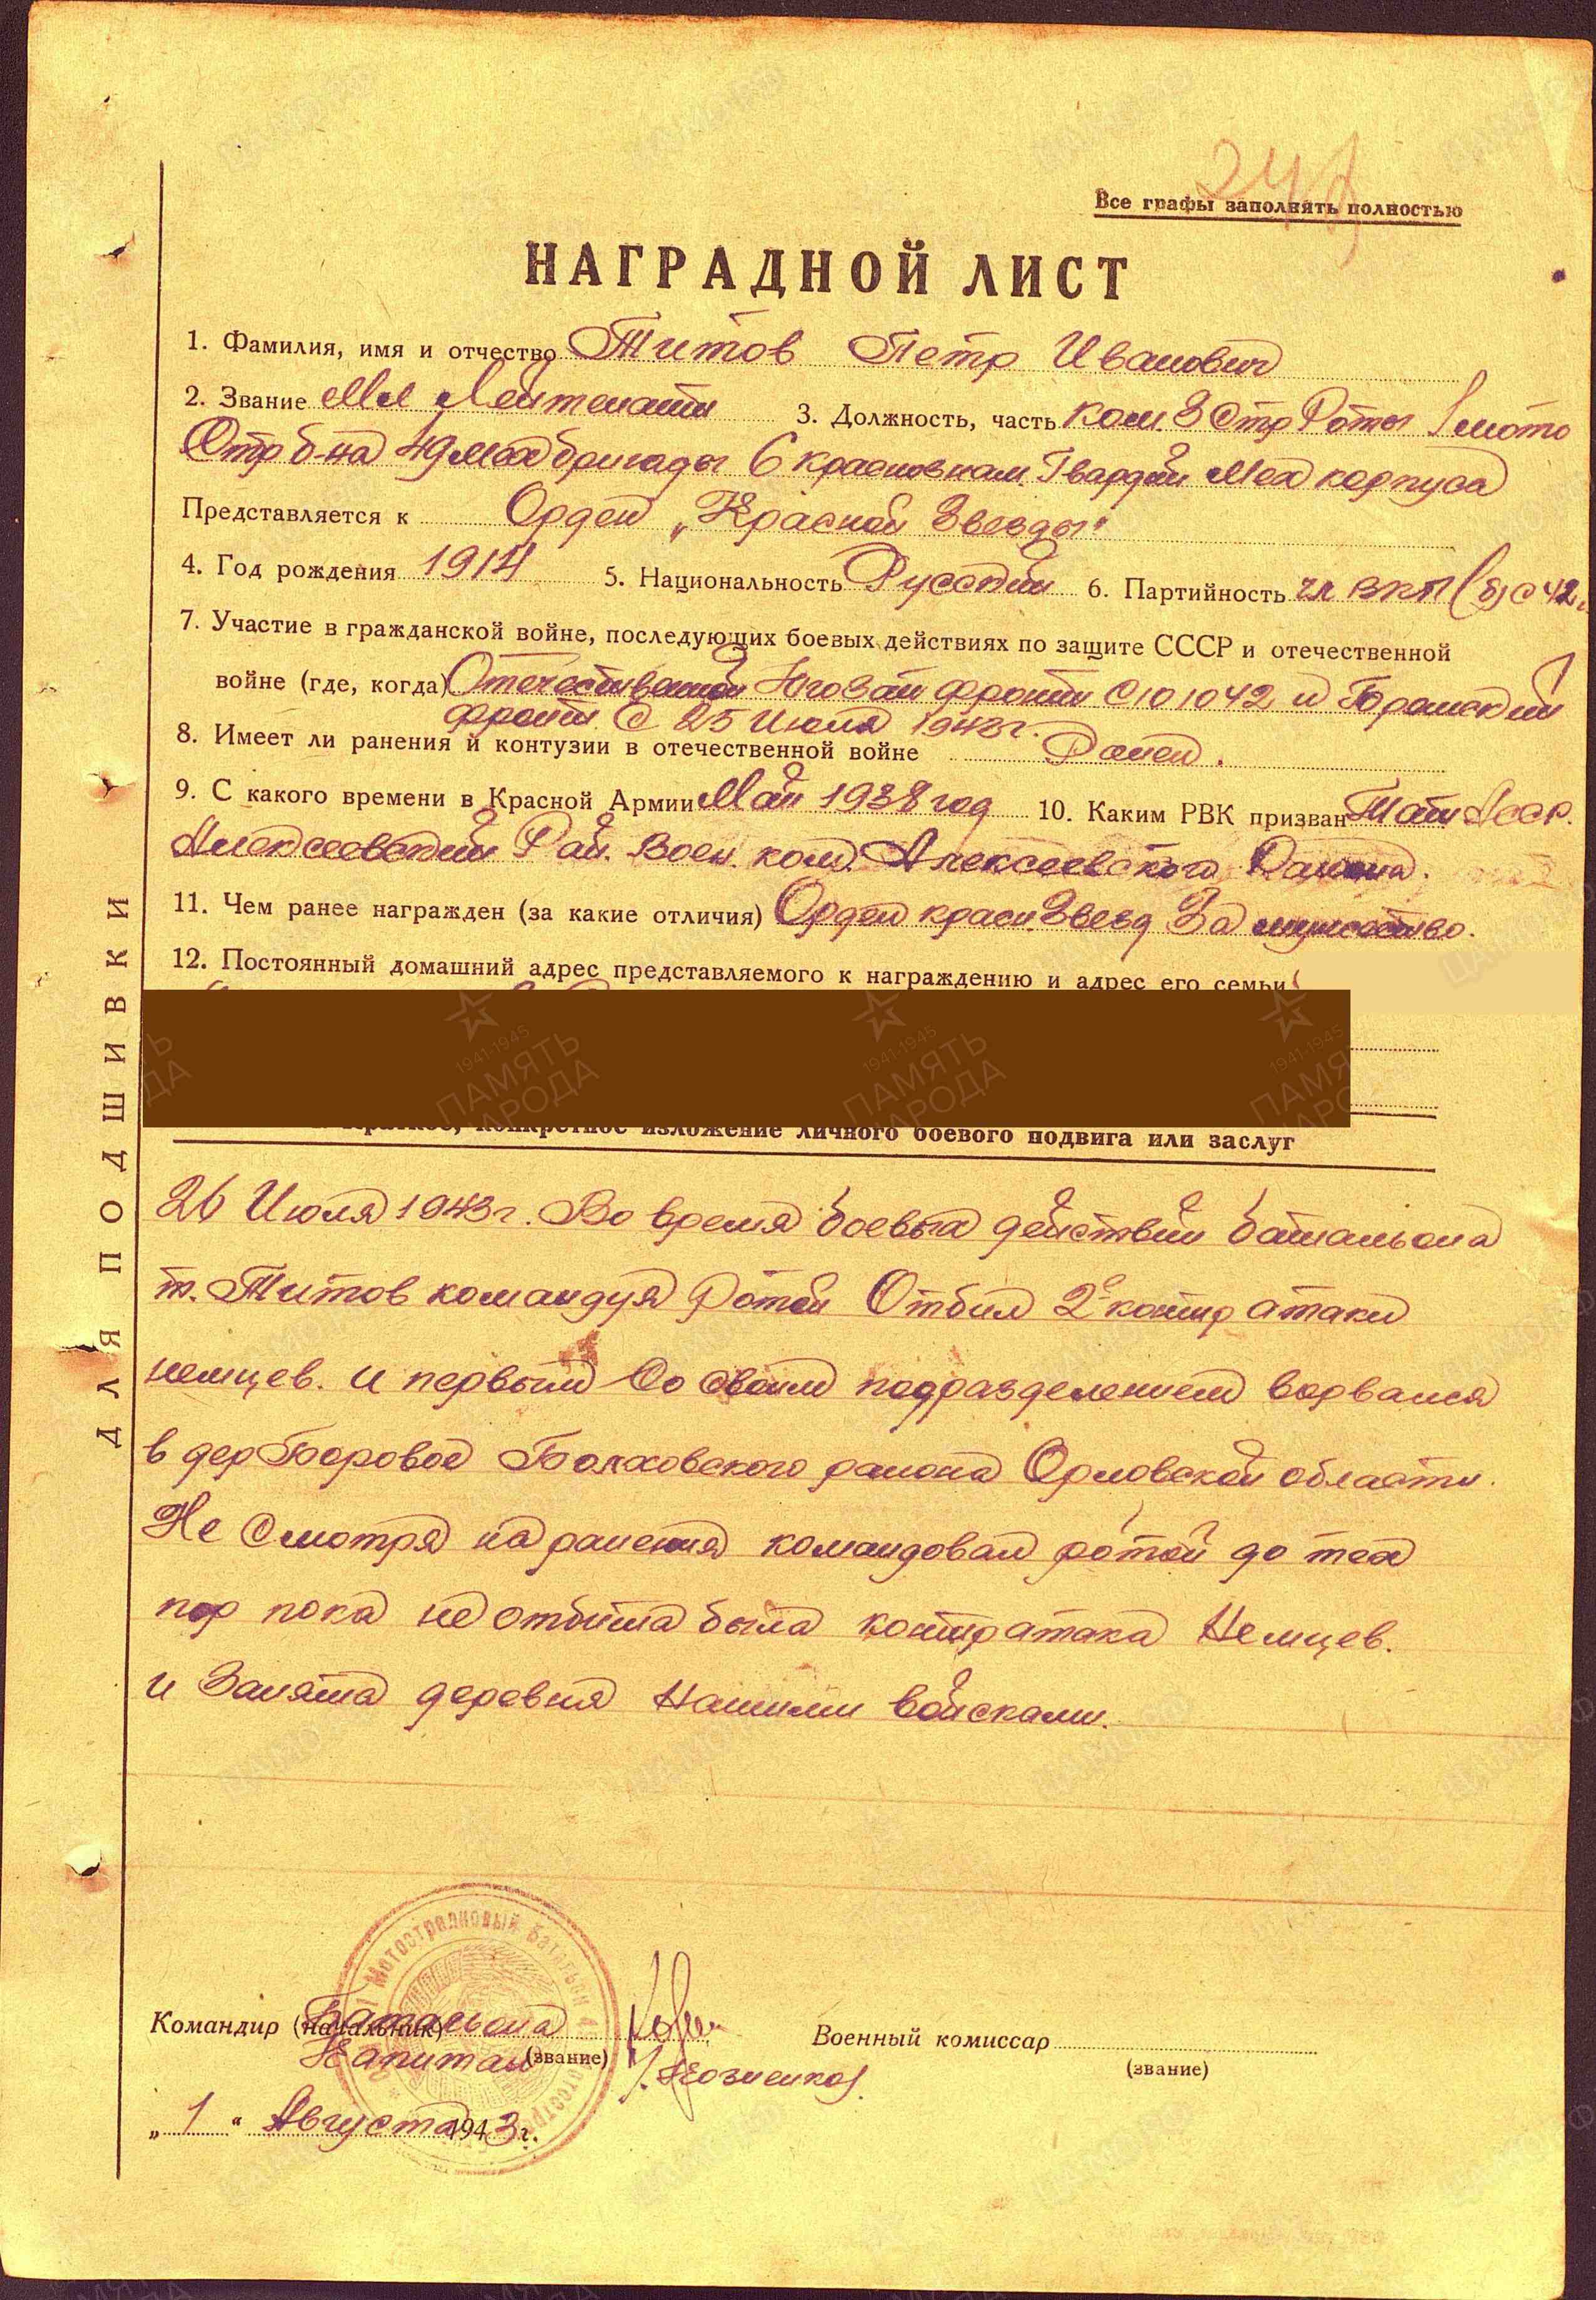 Все графы заполнять полностью
НАГРАДНОЙ ЛИСТ
1. Фамилия, имя и отчество Титов Петр Иванович
2. Звание Мл Лейтенант 3. Должность, часть Ком 3 Стр Роты 1 мото
Стр б-на 49 мехбригады 6 краснознам. Гвардей Мех корпуса
Представляется к Орден „Красной Звезды"
4. Год рождения 1914 5. Национальность Русский 6. Партийность чл ВКП(б) с 42
7. Участие в гражданской войне, последующих боевых действиях по защите СССР и отечественной
войне (где, когда) Отечественной Юго Зап фронт с 10 10 42 и
фронт С 25 Июля 1943 г.
8. Имеет ли ранения и контузии в отечественной войне Ранен.
9. С какого времени в Красной Армии Май 1938 год 10. Каким РВК призван Тат АССР.
Алексеевский Рай. Воен. ком. Алексеевского Района.
11. Чем ранее награжден (за какие отличия) Орден красн. Звезд За мужество.
12. Постоянный домашний адрес представляемого к награждению и адрес его семьи
Краткое, конкретное изложение личного боевого подвига или заслуг
26 Июля 1943 г. Во время боевых действий батальона
т. Титов командуя Ротой Отбил 2е контр атаки
немцев. и первым Со своим подразделением ворвался
в дер Боровое Болховского района Орловской области.
Не Смотря на ранения командовал ротой до тех
пор пока не отбита была контратака Немцев.
и Занята деревня Нашими войсками.
ДЛЯ ПОДШИВКИ
1 Мотострелковый Батальон
Командир (начальник) Батальона
Капитан (звание)
Военный комиссар
(звание)
„ 1 " Августа 1943 г.
1941-1945
ПАМЯТЬ
НАРОДА
1941-1945
ПАМЯТЬ
НАРОДА
1941-1945
ПАМЯТЬ
НАРОДА